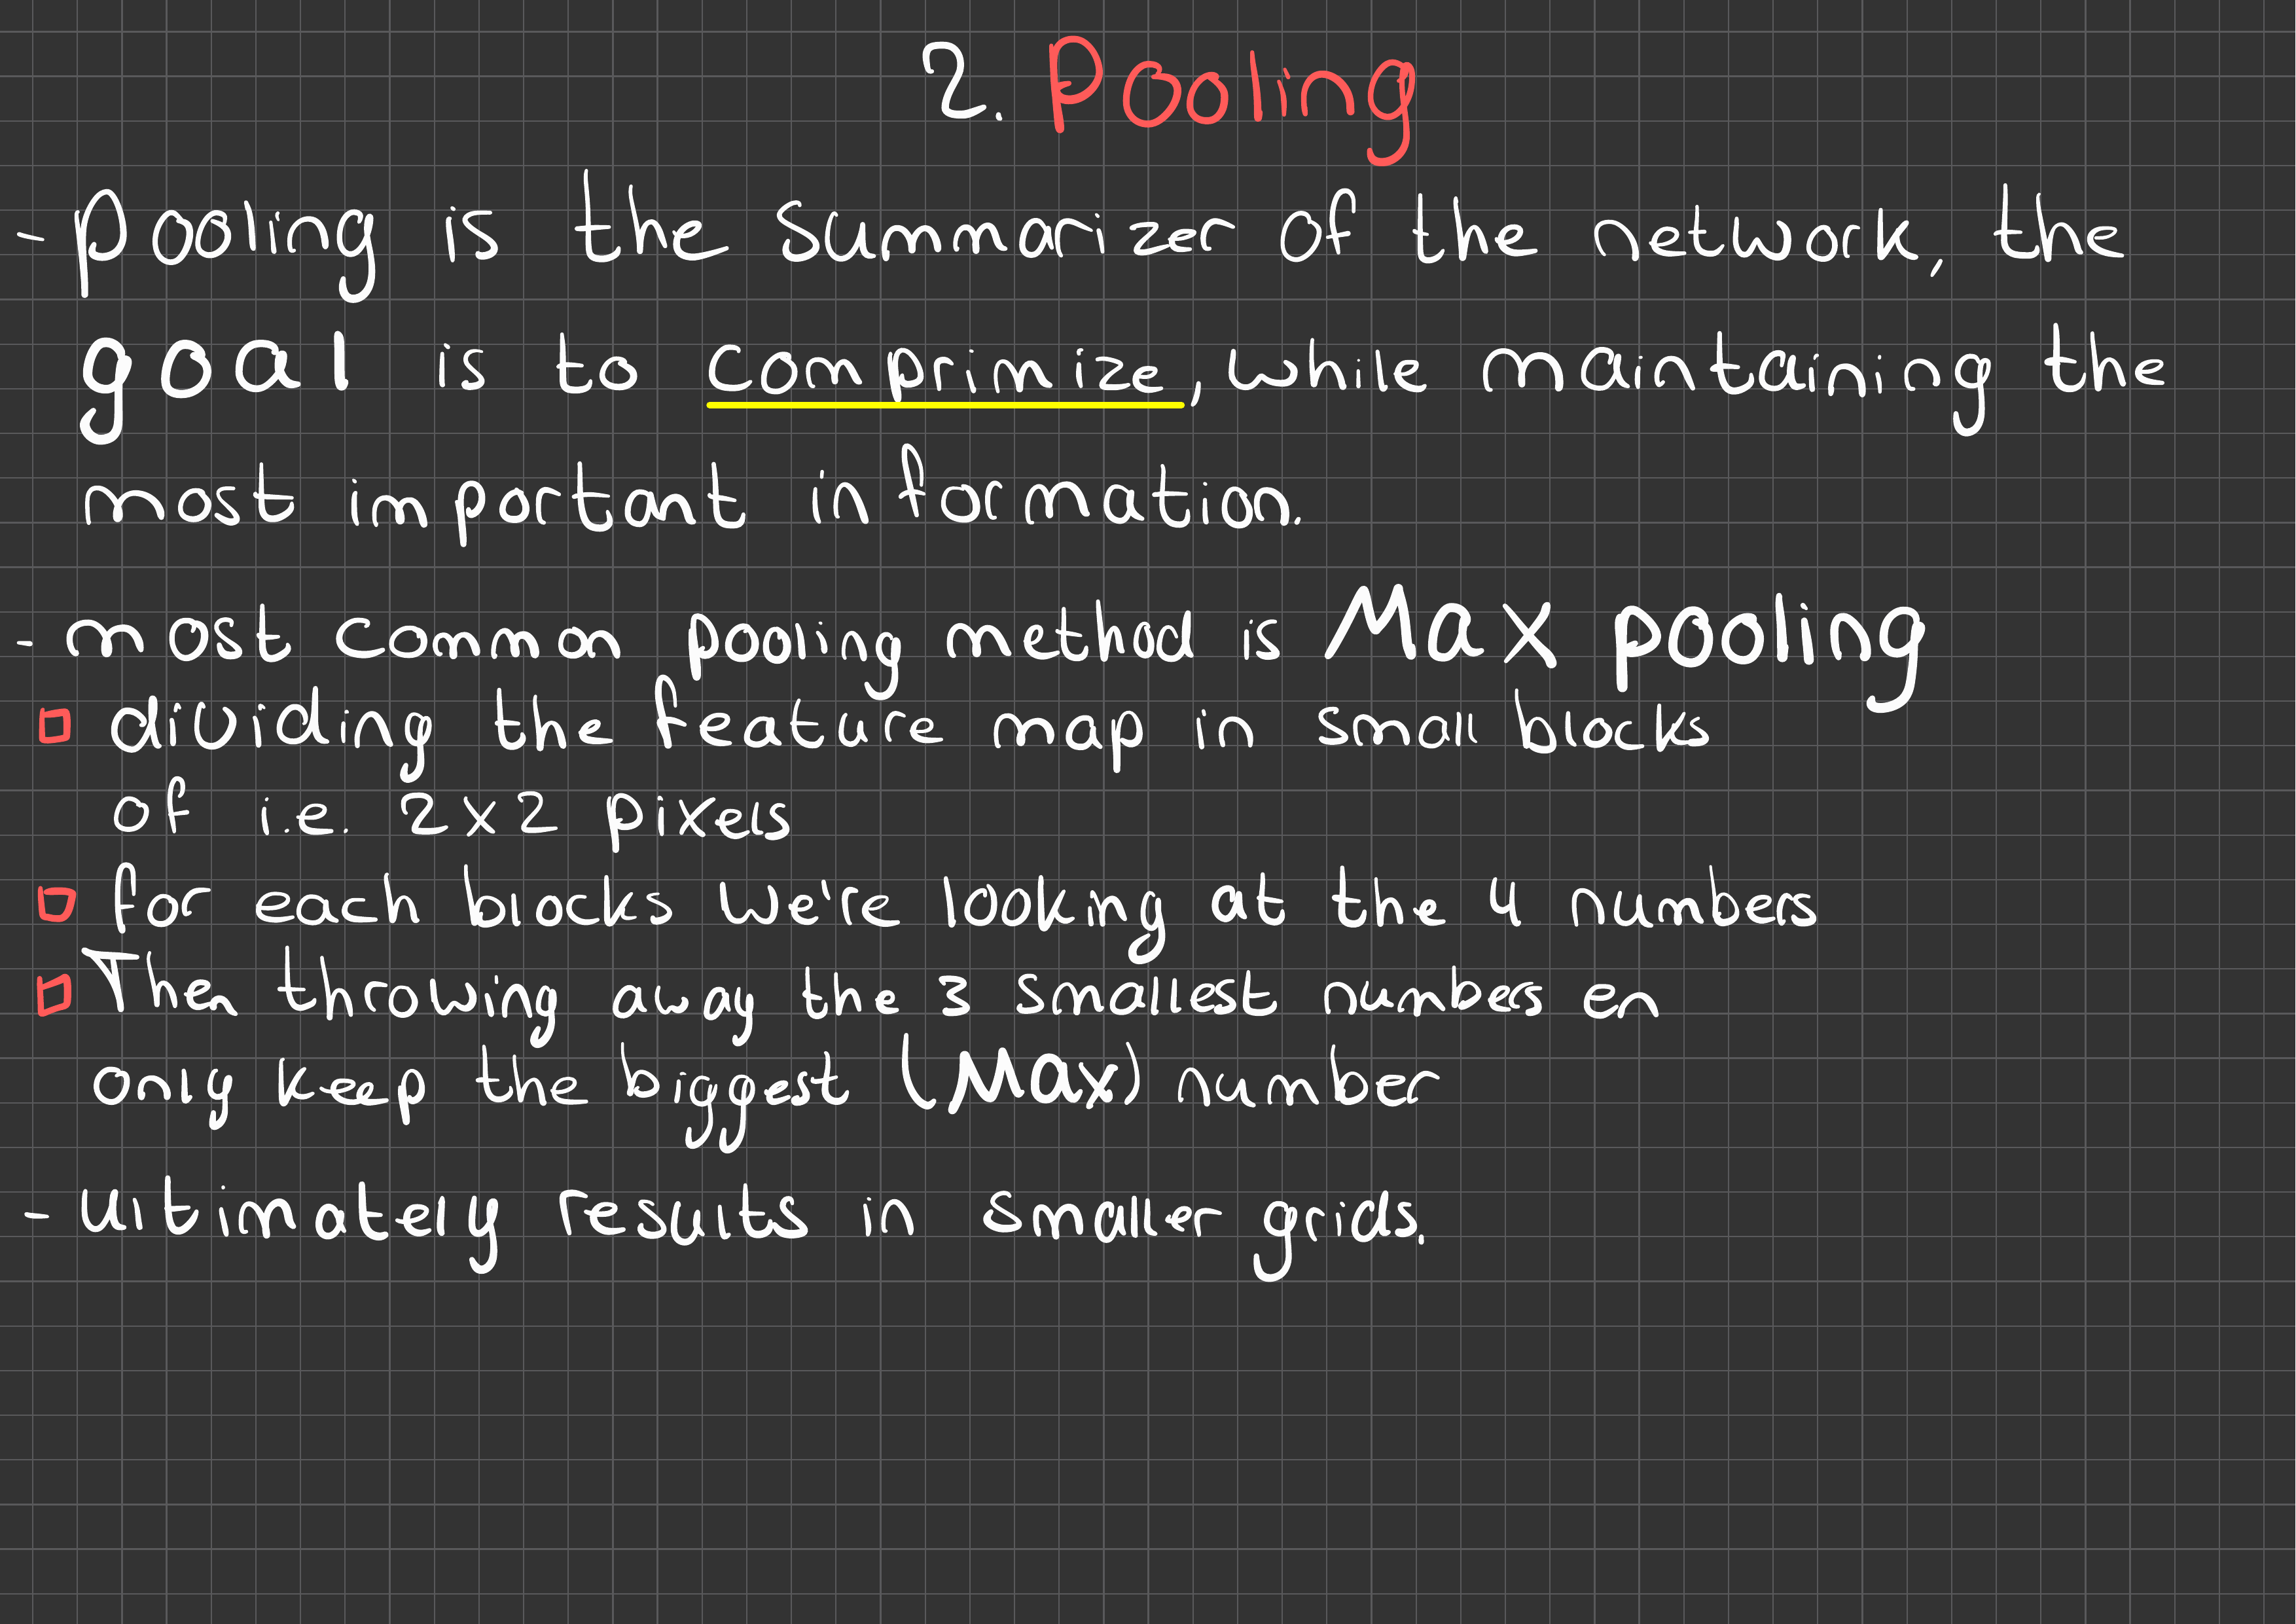 2. Pooling
- Pooling is the summarizer of the network, the
goal is to comprimize, while maintaining the
most important information.
- most common pooling method is Max pooling
dividing the feature map in small blocks
of i.e. 2x2 pixels
for each blocks we're looking at the 4 numbers
Then throwing away the 3 smallest numbers en
only keep the biggest (Max) number
- ultimately results in smaller grids.